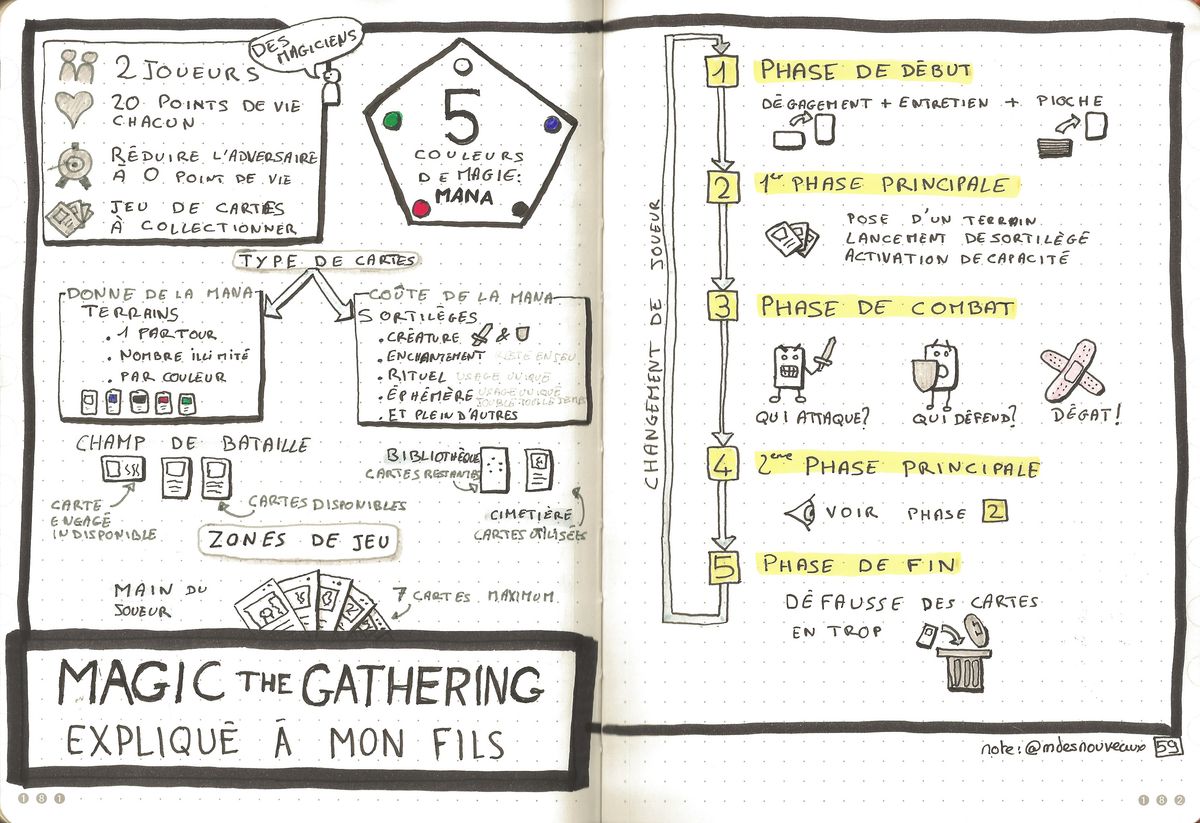 DES
MAGICIENS
2 JOUEURS
20 POINTS DE VIE
CHACUN
RÉDUIRE L'ADVERSAIRE
À 0 POINT DE VIE
JEU DE CARTES
À COLLECTIONNER
5
COULEURS
DE MAGIE:
MANA
TYPE DE CARTES
DONNE DE LA MANA
TERRAINS
. 1 PAR TOUR
. NOMBRE ILLIMITÉ
. PAR COULEUR
COÛTE DE LA MANA
SORTILÈGES
. CRÉATURE &
. ENCHANTEMENT RESTE EN JEU
. RITUEL USAGE UNIQUE
. ÉPHÉMÈRE USAGE UNIQUE
. ET PLEIN D'AUTRES
CHAMP DE BATAILLE
CARTE
ENGAGÉ
INDISPONIBLE
CARTES DISPONIBLES
BIBLIOTHÈQUE
CARTES RESTANTES
CIMETIÈRE
CARTES UTILISÉES
ZONES DE JEU
MAIN DU
JOUEUR
7 CARTES MAXIMUM
MAGIC THE GATHERING
EXPLIQUÉ À MON FILS
181
CHANGEMENT DE JOUEUR
1 PHASE DE DÉBUT
DÉGAGEMENT + ENTRETIEN + PIOCHE
2 1er PHASE PRINCIPALE
POSE D'UN TERRAIN
LANCEMENT DE SORTILÈGE
ACTIVATION DE CAPACITÉ
3 PHASE DE COMBAT
QUI ATTAQUE? QUI DÉFEND? DÉGAT!
4 2ème PHASE PRINCIPALE
VOIR PHASE 2
5 PHASE DE FIN
DÉFAUSSE DES CARTES
EN TROP
note: @mdesnouveaux 59
182